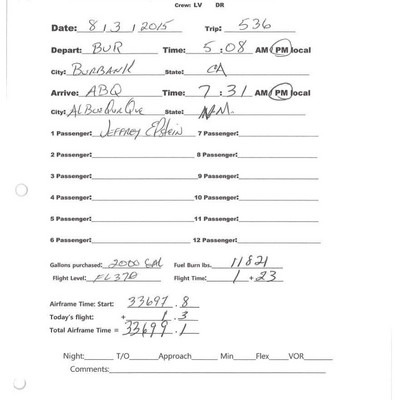 Crew: LV DR
Date: 8 / 3 / 2015 Trip: 536
Depart: BUR Time: 5 : 08 AM / PM local
City: BURBANK State: CA
Arrive: ABQ Time: 7 : 31 AM / PM local
City: ALBUQURQUE State: N.M.
1 Passenger: JEFFREY EPSTEIN 7 Passenger:
2 Passenger: 8 Passenger:
3 Passenger: 9 Passenger:
4 Passenger: 10 Passenger:
5 Passenger: 11 Passenger:
6 Passenger: 12 Passenger:
Gallons purchased: 2000 GAL Fuel Burn lbs. 11821
Flight Level: FL370 Flight Time: 1 + 23
Airframe Time: Start: 33697 . 8
Today's flight: + 1 . 3
Total Airframe Time = 33699 . 1
Night: T/O Approach Min Flex VOR
Comments: